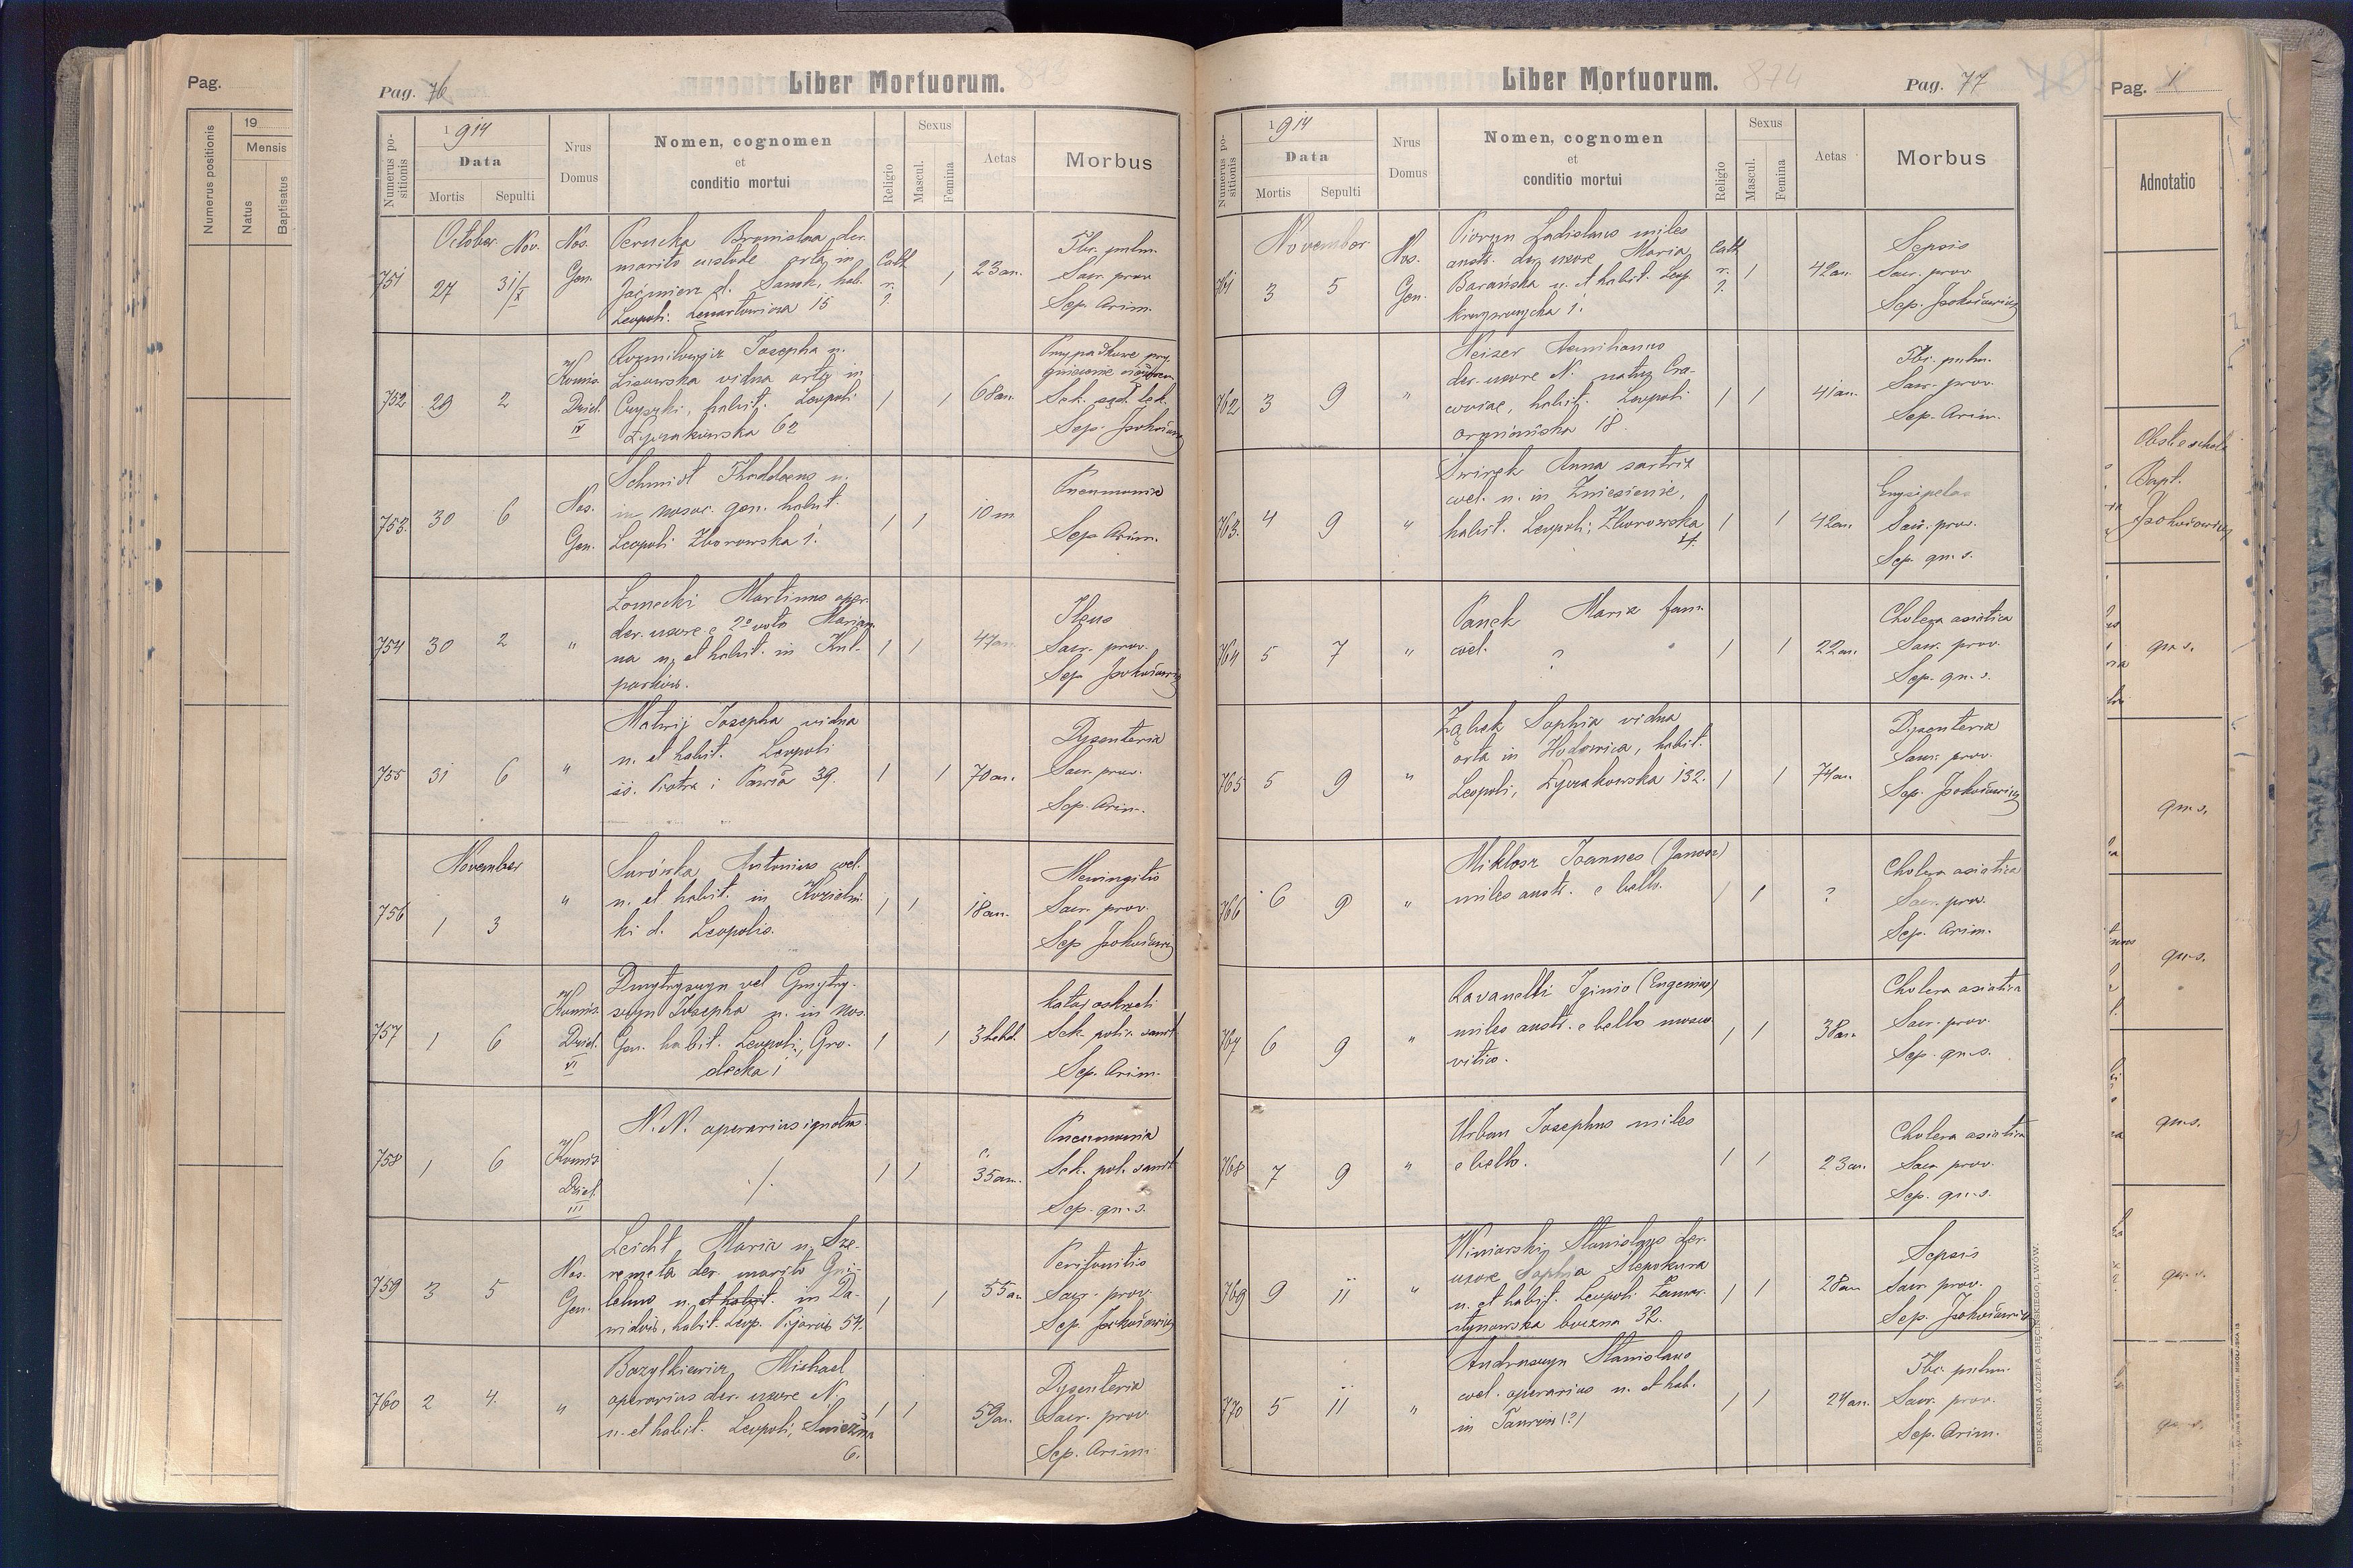 Pag.
Numerus positionis
19
Mensis
Natus
Baptisatus
Pag. 76
Liber Mortuorum.
Numerus positionis
1914
Data
Mortis
Sepulti
Nrus Domus
Nomen, cognomen
et
conditio mortui
Religio
Sexus
Mascul.
Femina
Aetas
Morbus
751
October Nov.
27
31/X
Nos.
Gen.
Bronislaa der.
marito custode orta in
Jaćmierz d. Sanok, hab.
Leopoli. Lenartowicza 15
Cath
r.
?
1
23 an.
Tbr. pulm.
Sacr. prov.
Sep. Arim.
752
29
2
Dziel.
IV
Josepha n.
Lisowska vidua orta in
habit. Leopoli
Łyczakowska 62
1
1
68 an.
Przypadkowe
Sek. sąd. lek.
753.
30
6
Nos.
Gen.
Schmidt Thaddaeus n.
in nosoc. gen. habit.
Leopoli Zborowska 1.
1
1
10 m.
Pneumonia
Sep. Arim.
754
30
2
"
Łomecki Martinus oper.
der. uxore e 2º voto Marian-
na n. et habit. in Kul-
parków.
1
1
47 an.
Ileus
Sacr. prov.
755
31
6
"
Matwij Josepha vidua
n. et habit. Leopoli
św. Piotra i Pawła 39.
1
1
70 an.
Dysenteria
Sacr. prov.
Sep. Arim.
756
November
1
3
"
Surówka Antonius coel.
n. et habit. in Kozielni-
ki d. Leopolis.
1
1
18 an.
Meningitis
Sacr. prov.
757
1
6
Dziel.
VI
Dmytryszyn vel Gmytry-
szyn Josepha n. in nos.
Gen. habit. Leopoli, Gro-
decka 1
1
1
3 hebd.
Katar oskrzeli
Sek. polic. sanit.
Sep. Arim.
758
1
6
Dziel.
III
N. N. operarius ignotus
./.
1
1
c.
35 an.
Pneumonia
Sek. pol. sanit.
Sep. qu. s.
759
3
5
Nos.
Gen.
Leicht Maria n. Sze-
remeta der. marito Gui-
lelmo n. et habit. in Da-
widów, habit. Leop. Pijarów 54.
1
1
55 an.
Peritonitis
Sacr. prov.
760
2
4.
"
Bazylkiewicz Michael
operarius der. uxore N.
n. et habit. Leopoli, Śnieżna
6.
1
1
59 an.
Dysenteria
Sacr. prov.
Sep. Arim.
Liber Mortuorum.
874
Pag. 77
Numerus positionis
1914
Data
Mortis
Sepulti
Nrus Domus
Nomen, cognomen
et
conditio mortui
Religio
Sexus
Mascul.
Femina
Aetas
Morbus
761
November
3
5
Nos.
Gen.
Piorun Ladislaus miles
austr. der. uxore Maria
Barańska n. et habit. Leop.
Krzywczycka 1.
Cath
r.
?
1
42 an.
Sepsis
Sacr. prov.
762
3
9
"
Heiser Aemilianus
der. uxore N. natus Cra-
coviae, habit. Leopoli
Ormiańska 18.
1
1
41 an.
Tbc. pulm.
Sacr. prov.
Sep. Arim.
763.
4
9
"
Anna sartrix
coel. n. in Zniesienie,
habit. Leopoli, Zborowska
4.
1
1
42 an.
Erysipelas
Sacr. prov.
Sep. qu. s.
764
5
7
"
Panek Maria fam.
coel.
?
1
1
22 an.
Cholera asiatica
Sacr. prov.
Sep. qu. s.
765
5
9
"
Ząbek Sophia vidua
orta in Hodowica, habit.
Leopoli, Łyczakowska 132.
1
1
74 an.
Dysenteria
Sacr. prov.
766
6
9
"
Miklosz Joannes (Janosz)
miles austr. e bello.
1
1
?
Cholera asiatica
Sacr. prov.
Sep. Arim.
767
6
9
"
Ravanelli Iginio (Eugenius)
miles austr. e bello mosco-
vitico.
1
1
38 an.
Cholera asiatica
Sacr. prov.
Sep. qu. s.
768
7
9
"
Urban Josephus miles
e bello.
1
1
23 an.
Cholera asiatica
Sacr. prov.
Sep. qu. s.
769
9
11
"
Winiarski Stanislaus der.
uxore Sophia Ślepokura
n. et habit. Leopoli Zamar-
stynowska boczna 32.
1
1
28 an.
Sepsis
Sacr. prov.
770
5
11
"
Andruszyn Stanislaus
coel. operarius n. et hab.
in Taurów (?)
1
1
24 an.
Tbc. pulm.
Sacr. prov.
Sep. Arim.
DRUKARNIA JÓZEFA CHĘCIŃSKIEGO, LWÓW.
Pag.
Adnotatio
Bapt.
qu. s.
qu. s.
qu. s.
qu. s.
qu. s.
qu. s.